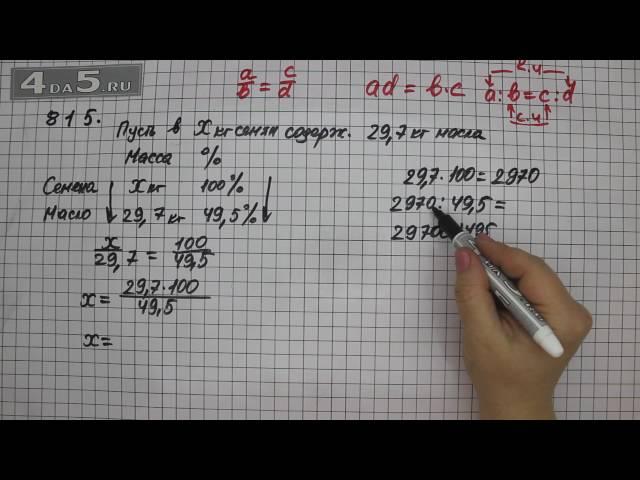 4DA5.RU
a/b = c/d
ad = b·c
к.ч
a:b=c:d
с.ч
815.
Пусть в X кг семян содерж. 29,7 кг масла
Масса %
Семена X кг 100%
Масло 29,7 кг 49,5%
x/29,7 = 100/49,5
x = 29,7·100/49,5
x =
29,7·100 = 2970
2970 : 49,5 =
2970 495